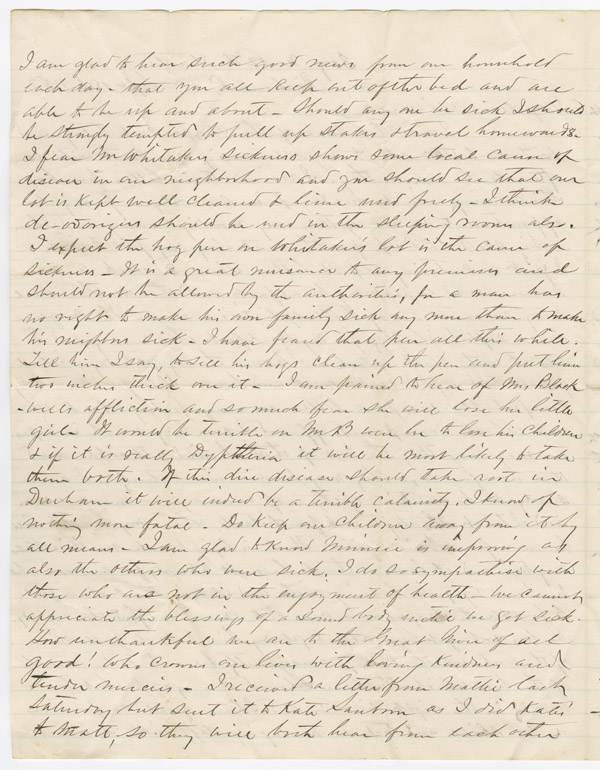 I am glad to hear such good news from our household
each day - that you all keep out of the bed and are
able to be up and about - Should any one be sick I should
be strongly tempted to pull up stakes & travel homewards -
I fear Mr Whitakers sickness shows some local cause of
disease in our neighborhood and you should see that our
lot is kept well cleaned & lime used freely - I think
de-odorizers should be used in the sleeping rooms also.
I expect the hog pen on Whitakers lot is the cause of
sickness - It is a great nuisance to any premises and
should not be allowed by the authorities, for a man has
no right to make his own family sick any more than to make
his neighbors sick - I have feared that pen all this while.
Tell him I say, to sell his hogs clean up the pen and put lime
two inches thick over it - I am pained to hear of Mrs Black
-wells affliction and so much fear she will lose her little
girl - It would be terrible on Mr B were he to lose his children
& if it is really Dyptheria it will be most likely to take
them both. If this dire disease should take root in
Durham it will indeed be a terrible calamity. I know of
nothing more fatal - Do keep our children away from it by
all means - I am glad to know Minnie is improving as
also the others who were sick. I do so sympathise with
those who are not in the enjoyment of health - we cannot
appreciate the blessings of a sound body until we get sick.
How unthankful we are to the Great Giver of all
good! who crowns our lives with loving kindness and
tender mercies - I received a letter from Mattie last
Saturday but sent it to Kate Sanborn as I did Kates
to Matt, so they will both hear from each other